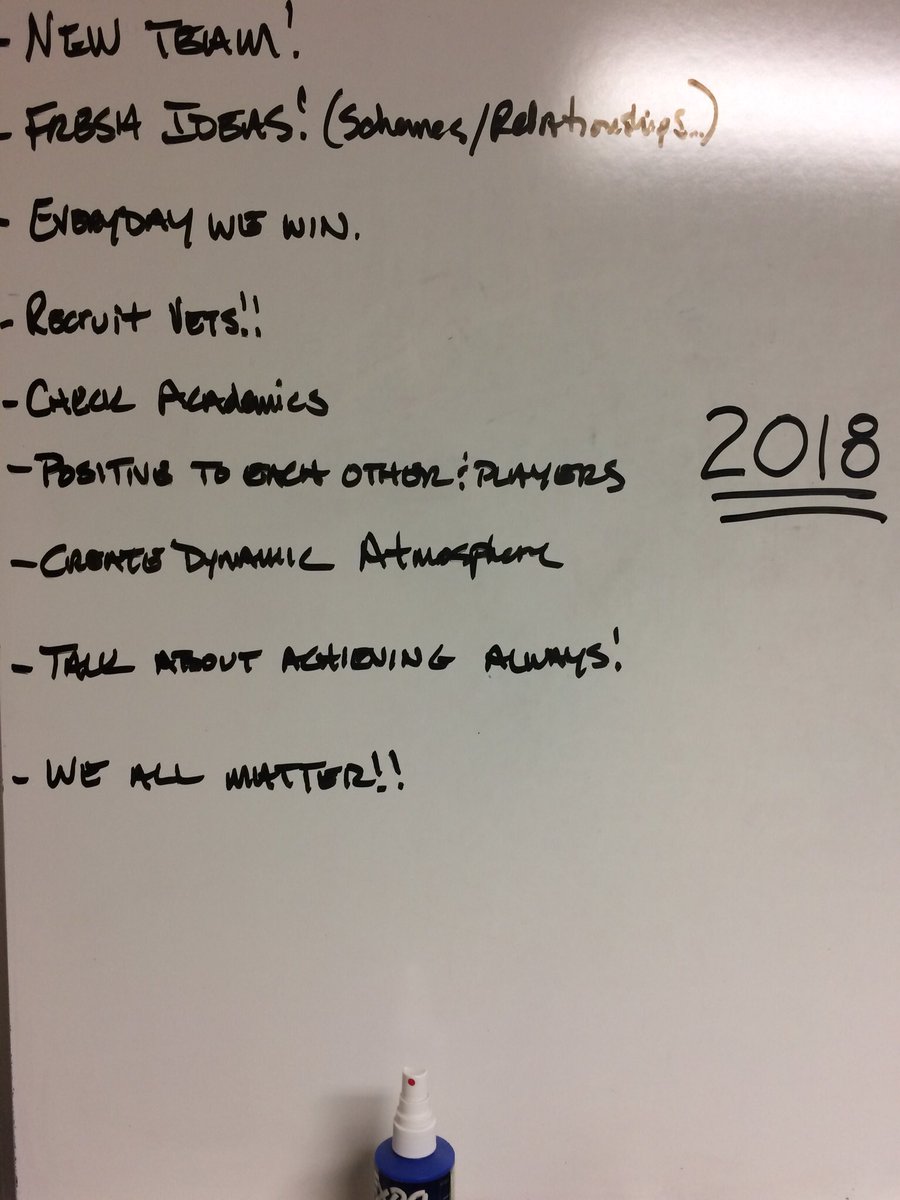 - NEW TEAM!
- FRESH IDEAS! (Schemes/Relationships...)
- EVERYDAY WE WIN.
- RECRUIT VETS!!
- CHECK ACADEMICS
2018
- POSITIVE TO EACH OTHER : PLAYERS
- CREATE DYNAMIC Atmosphere
- TALK ABOUT ACHIEVING ALWAYS!
- WE ALL MATTER!!
EXPO